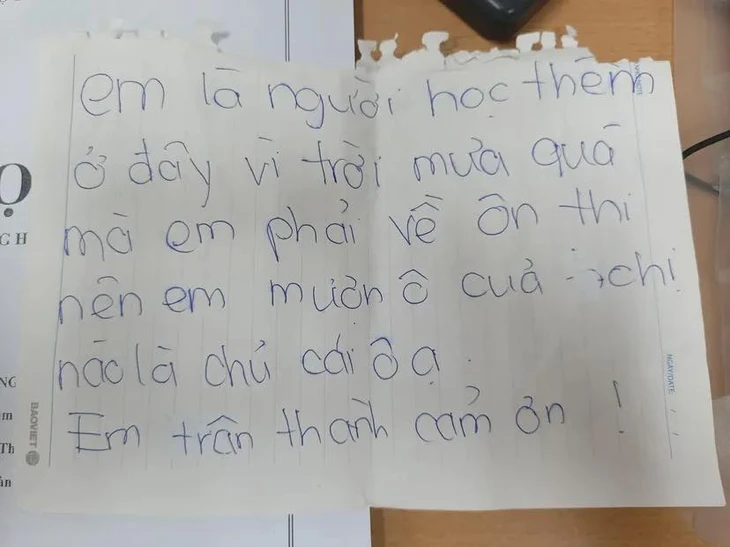 em là người học thêm
ở đây vì trời mưa quá
mà em phải về ôn thi
nên em mượn ô của chị
nào là chủ cái ô ạ.
Em trân thành cảm ơn !
BAOVIET
NGÀY/DATE / /
G H
NG
m
Th
ản